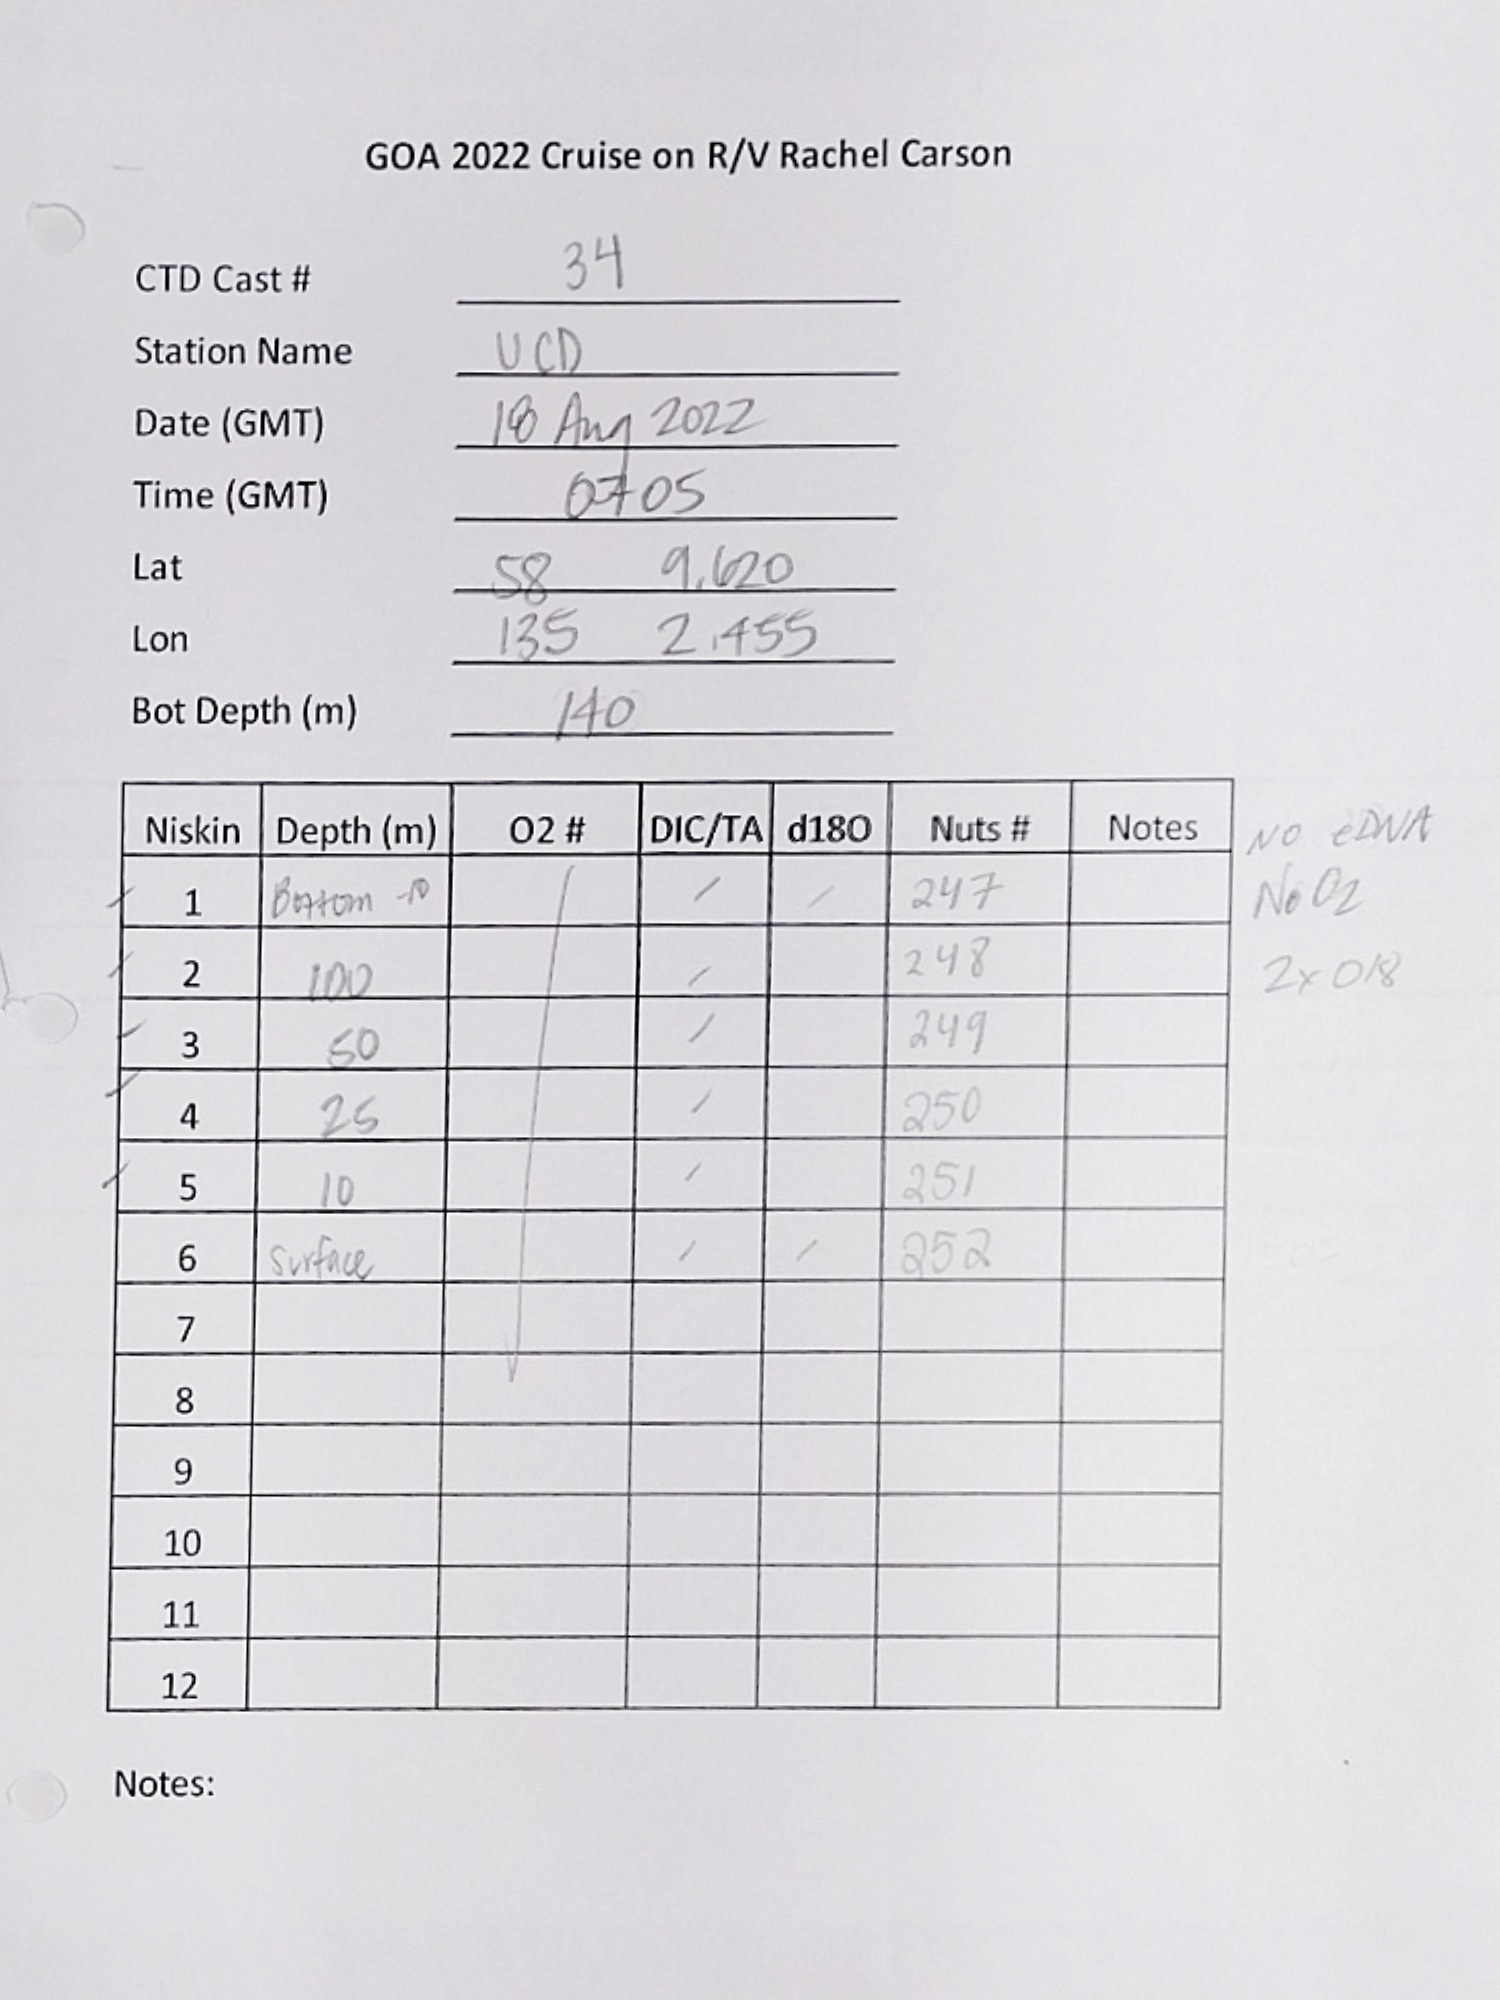 GOA 2022 Cruise on R/V Rachel Carson
CTD Cast # 34
Station Name UCD
Date (GMT) 18 Aug 2022
Time (GMT) 0705
Lat 58 9.620
Lon 135 2.455
Bot Depth (m) 140
Niskin Depth (m) O2 # DIC/TA d18O Nuts # Notes NO eDNA
1 Bottom -10 / / 247 No O2
2 100 / 248 2x O18
3 50 / 249
4 25 / 250
5 10 / 251
6 Surface / / 252
7
8
9
10
11
12
Notes: